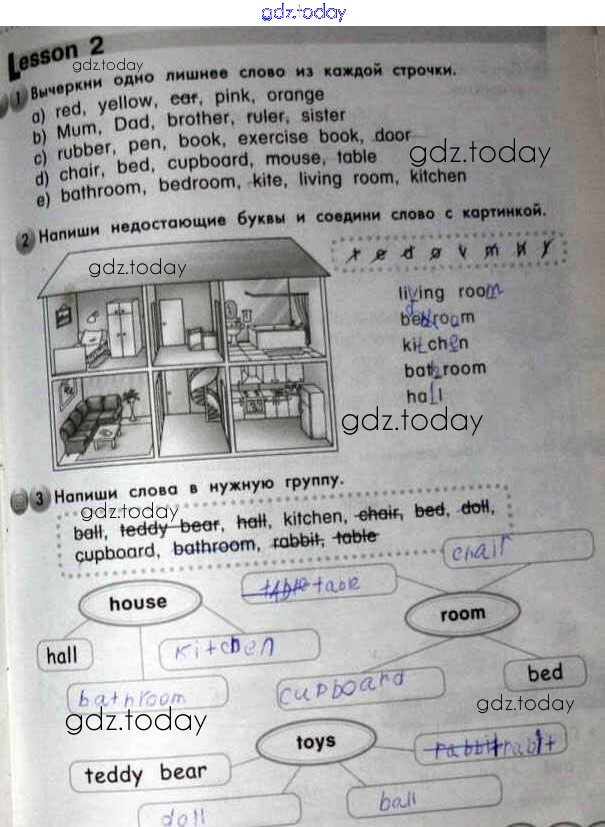 gdz.today
Lesson 2
gdz.today
1 Вычеркни одно лишнее слово из каждой строчки.
a) red, yellow, ear, pink, orange
b) Mum, Dad, brother, ruler, sister
c) rubber, pen, book, exercise book, door
gdz.today
d) chair, bed, cupboard, mouse, table
e) bathroom, bedroom, kite, living room, kitchen
2 Напиши недостающие буквы и соедини слово с картинкой.
gdz.today
living room
bedroom
kitchen
bathroom
hall
gdz.today
3 Напиши слова в нужную группу.
gdz.today
ball, teddy bear, hall, kitchen, chair, bed, doll,
cupboard, bathroom, rabbit, table
chair
table table
house
room
hall
kitchen
bed
bathroom
cupboard
gdz.today
gdz.today
toys
rabbit rabit
teddy bear
doll
ball